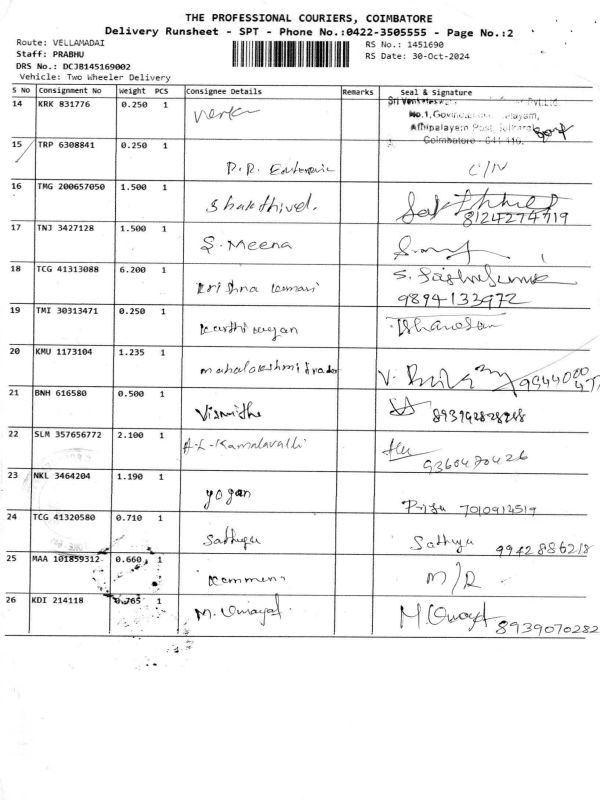 THE PROFESSIONAL COURIERS, COIMBATORE
Delivery Runsheet - SPT - Phone No.:0422-3505555 - Page No.:2
Route: VELLAMADAI
RS No.: 1451690
Staff: PRABHU
RS Date: 30-Oct-2024
DRS No.: DCJB145169002
Vehicle: Two Wheeler Delivery
S No Consignment No Weight PCS Consignee Details Remarks Seal & Signature
14 KRK 831776 0.250 1
No.1, Govindan
Athipalayam Post,
Coimbatore - 641 110.
15 TRP 6308841 0.250 1
P.R. Enterprise C/N
16 TMG 200657050 1.500 1
Shakthivel.
8124274719
17 TNJ 3427128 1.500 1
S. Meena
18 TCG 41313088 6.200 1
Krishna Kumari
9894133972
19 TMI 30313471 0.250 1
Karthikeyan Dhanasan
20 KMU 1173104 1.235 1
mahalakshmi traders
21 BNH 616580 0.500 1
Vismitha
22 SLM 357656772 2.100 1
A-L-Kamalavalli
9360470426
23 NKL 3464204 1.190 1
yogan
Priya 7010914519
24 TCG 41320580 0.710 1
Sathya Sathya 9942886218
25 MAA 101859312 0.660 1
M/R
26 KDI 214118 0.765 1
M. Umayal M. Umayal
8939070282